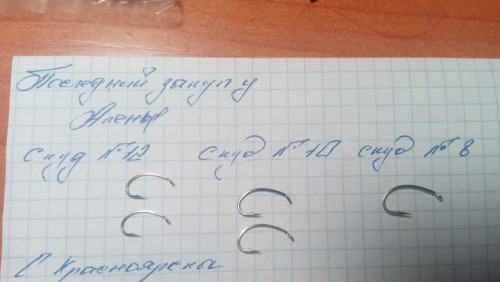 Последний закуп у
Алены
скуд №12 скуд №10 скуд №8
С Красноярска